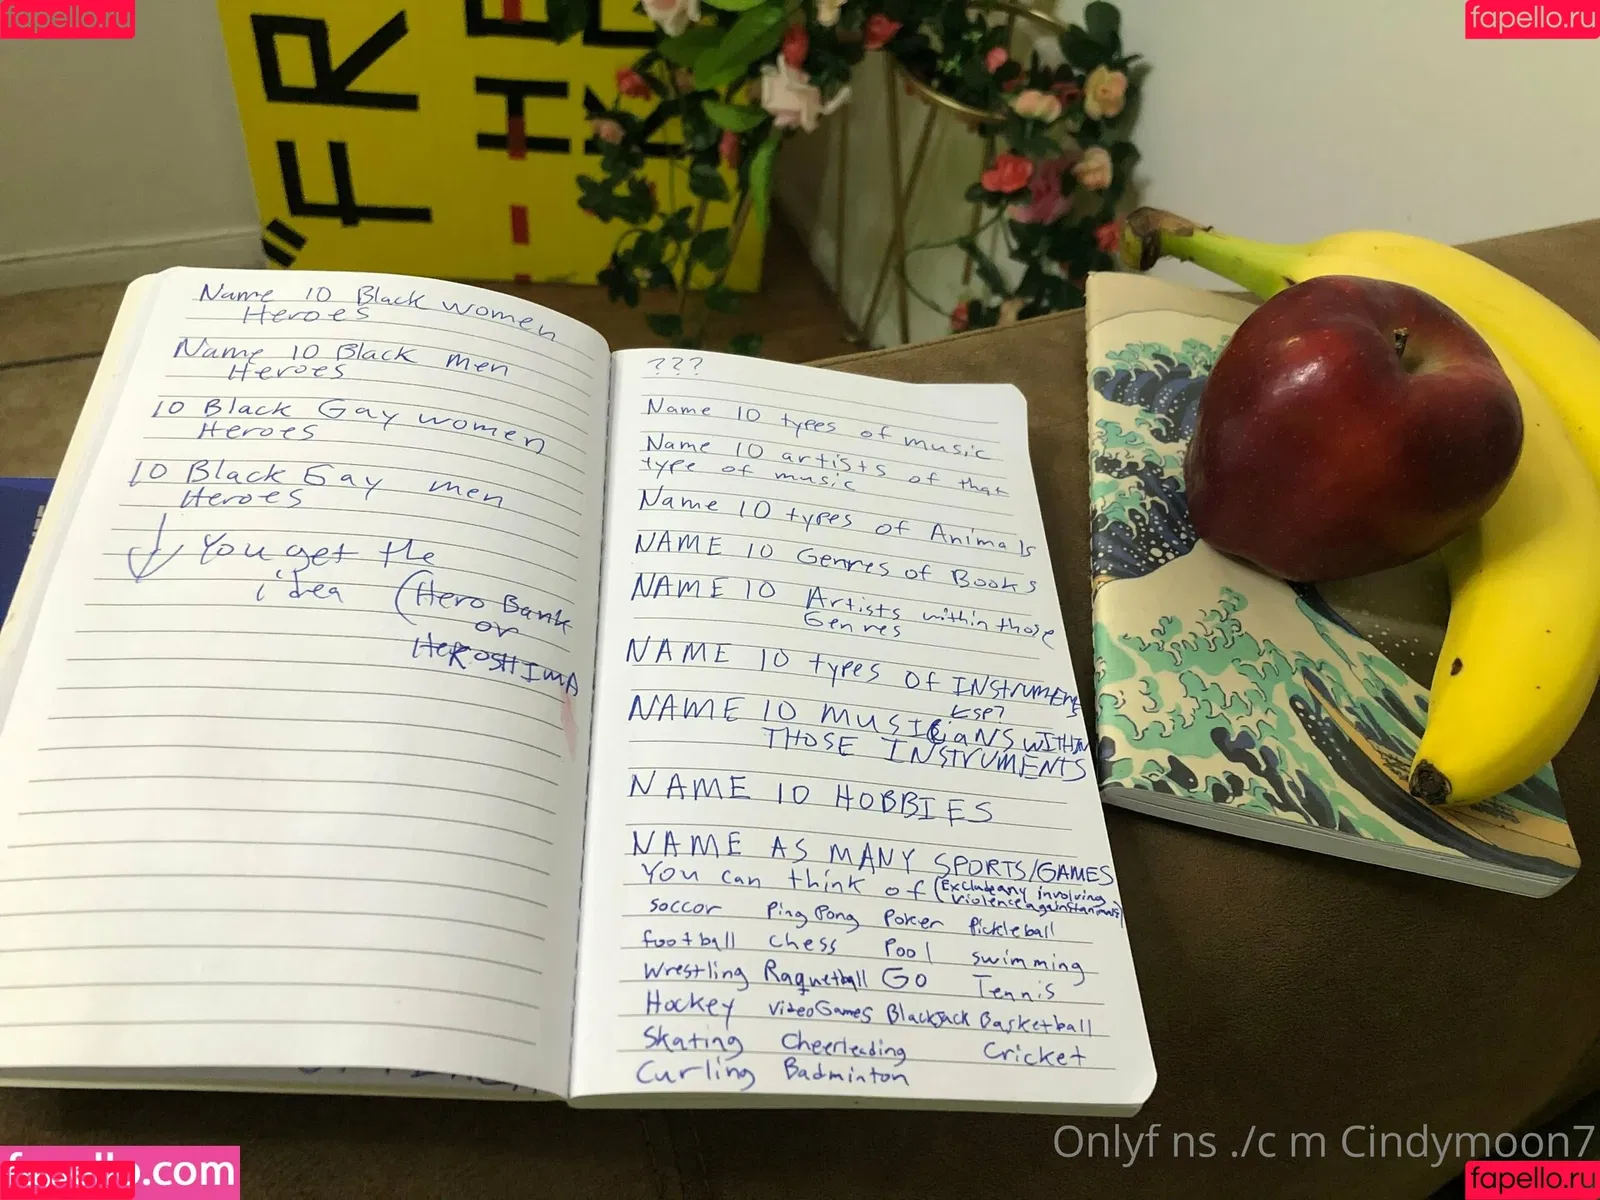 fapello.ru
fapello.ru
"FR
Name 10 Black women
Heroes
Name 10 Black men
Heroes
10 Black Gay women
Heroes
10 Black Gay men
Heroes
You get the
idea (Hero Bank
or
HEROSHIMA
???
Name 10 types of music
Name 10 artists of that
type of music
Name 10 types of Animals
NAME 10 Genres of Books
NAME 10 Artists within those
Genres
NAME 10 types OF INSTRUMENTS
<SP?
NAME 10 MUSICIANS WITHIN
THOSE INSTRUMENTS
NAME 10 HOBBIES
NAME AS MANY SPORTS/GAMES
You can think of (Exclude any involving
violence against animals)
soccor Ping Pong Poker Pickleball
football chess Pool swimming
Wrestling Raquetball GO Tennis
Hockey videoGames Blackjack Basketball
Skating Cheerleading Cricket
Curling Badminton
Onlyf ns ./c m Cindymoon7
fapello.ru
fapello.ru